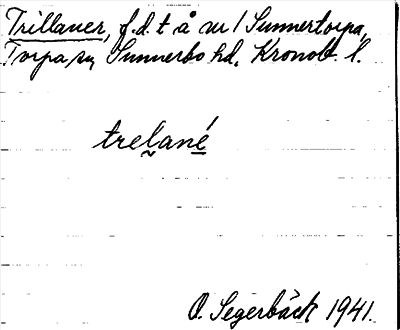 Trillaner, f.d. t å nr 1 Sunnertorpa,
Torpa sn, Sunnerbo hd, Kronob. l.
trelané
O. Segerbäck 1941.